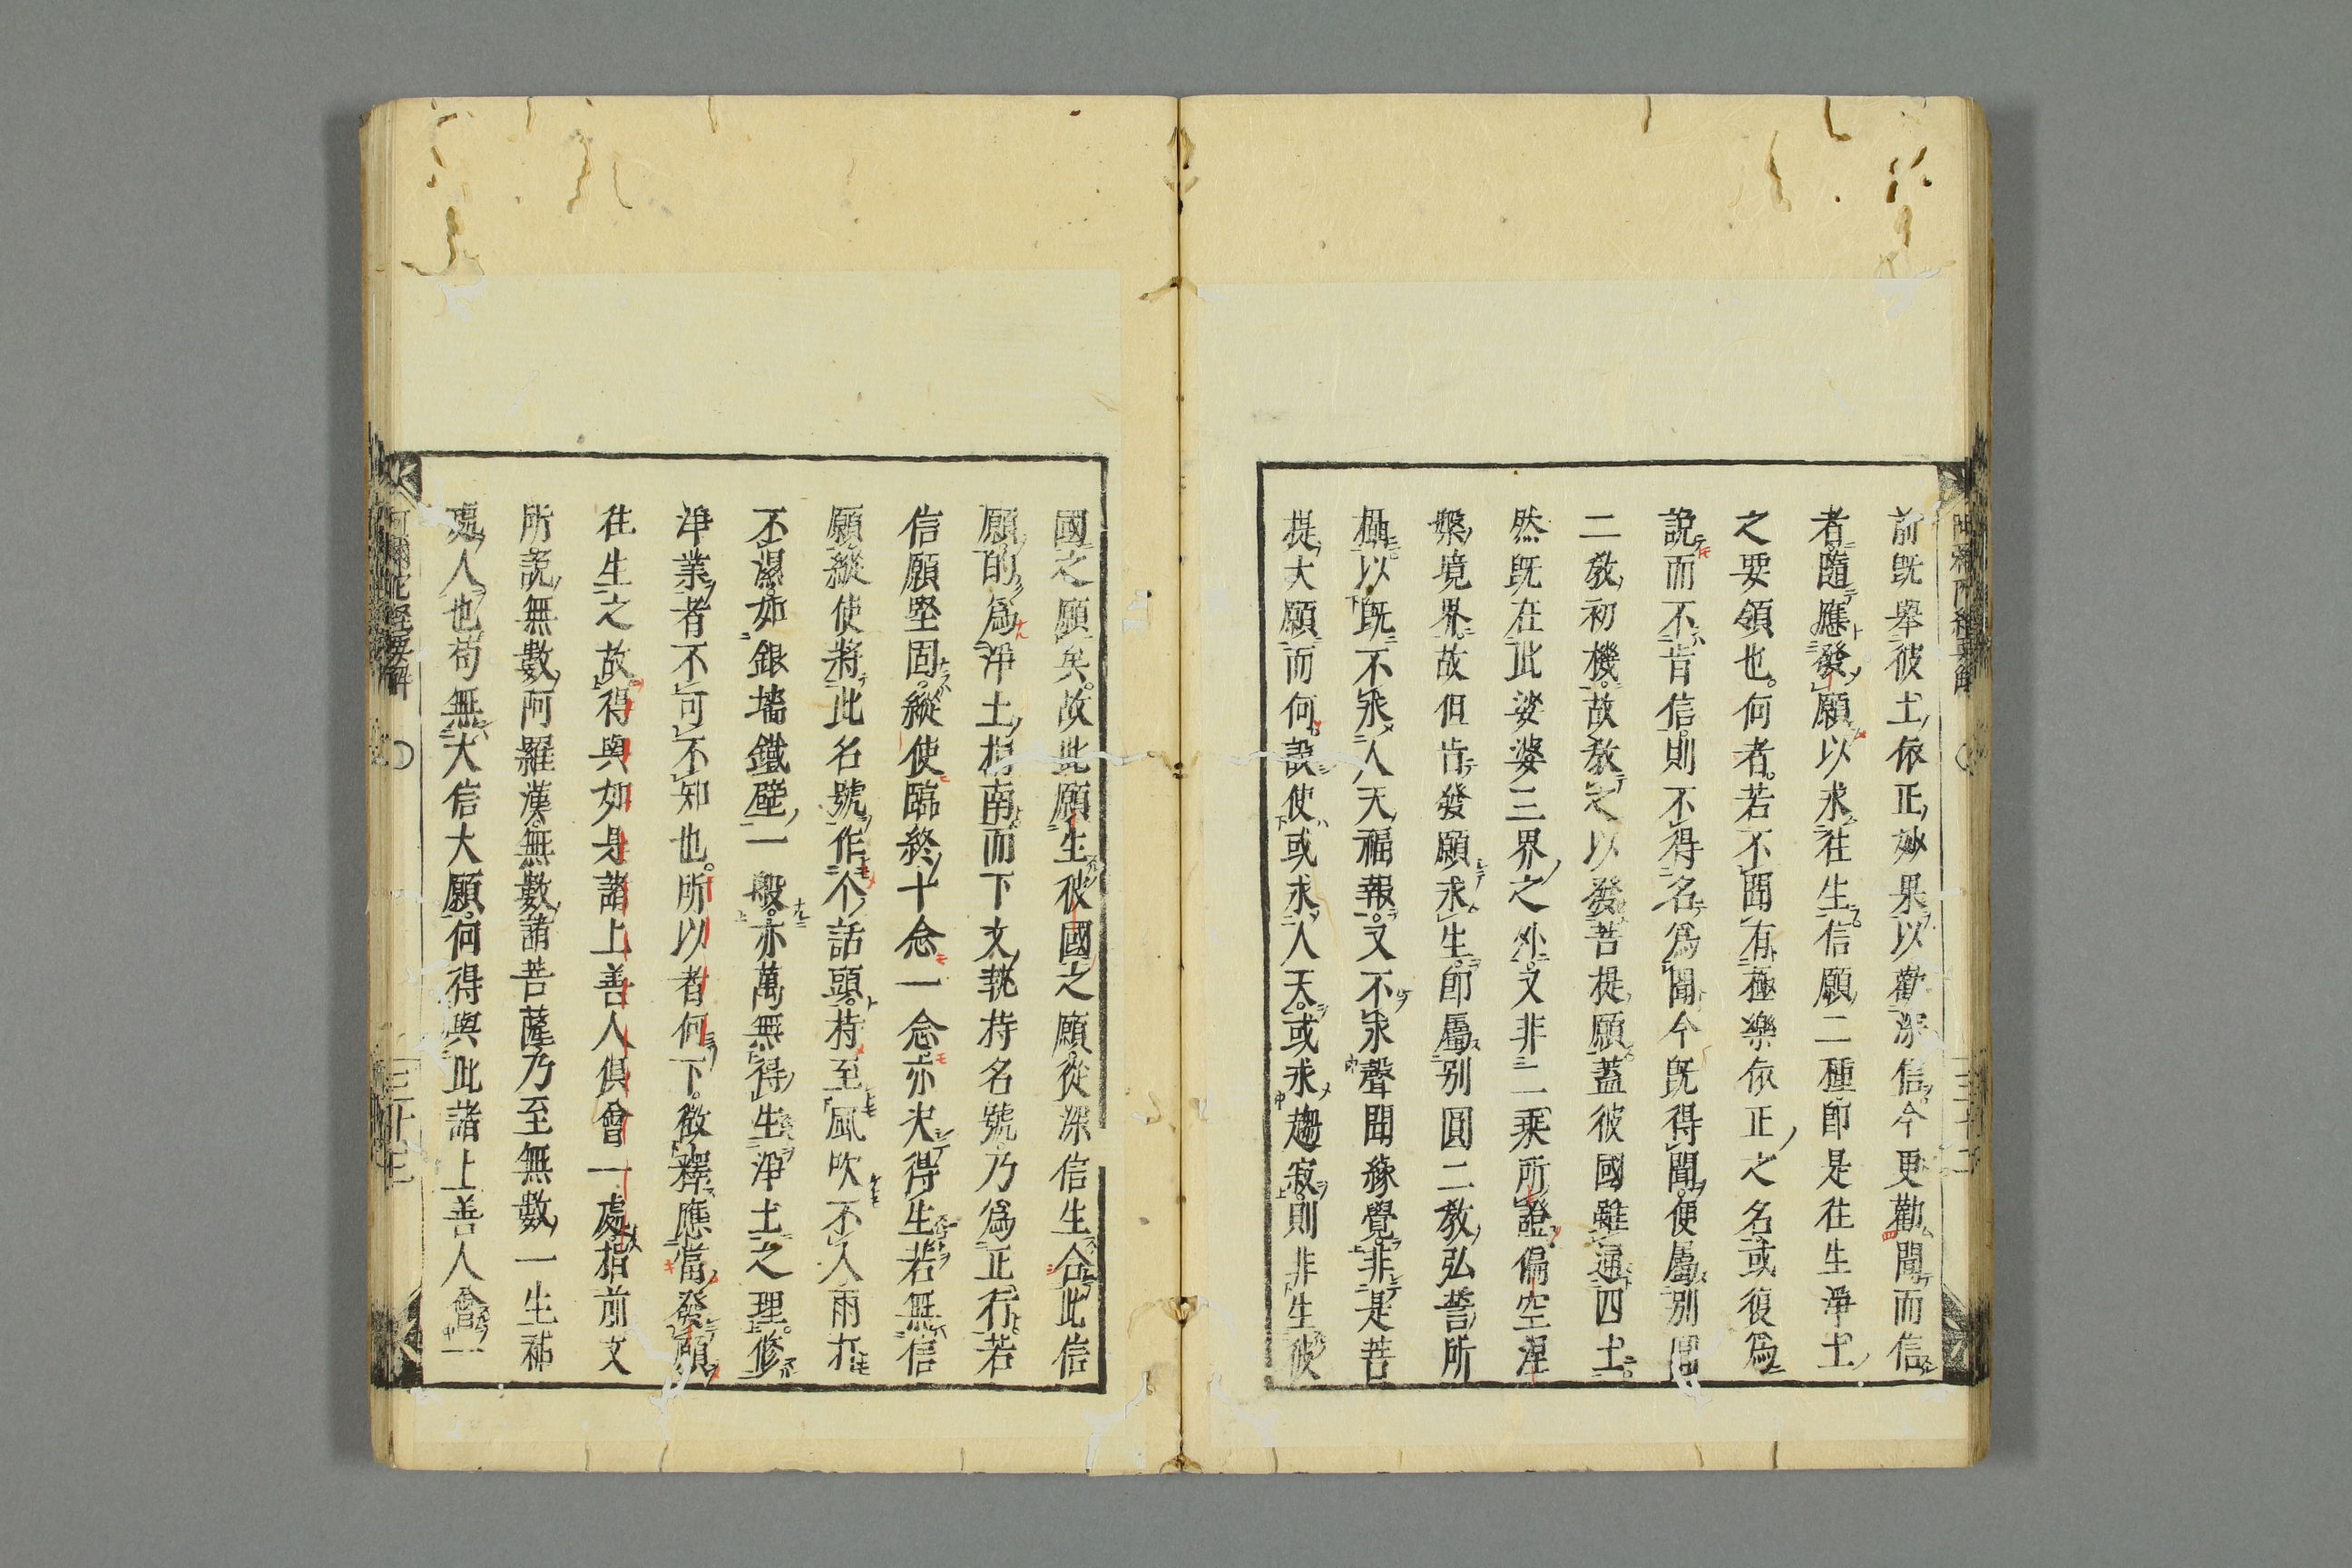 前既舉彼土依正妙果以勸深信今更勸聞而信
者隨應發願以求往生信願二種卽是往生淨土
之要領也何者若不聞有極樂依正之名或復爲
說而不肯信則不得名爲聞今既得聞便屬別圓
二教初機故教之以發菩提願蓋彼國雖通四土
然既在此娑婆三界之外又非二乘所證偏空涅
槃境界故但肯發願求生卽屬別圓二教弘誓所
攝以既不求人天福報又不求聲聞緣覺非是菩
提大願而何設使或求人天或求趣寂則非生彼
國之願矣故此願生彼國之願從深信生合此信
願的爲淨土指南而下文執持名號乃爲正行若
信願堅固縱使臨終十念一念亦决得生若無信
願縱使將此名號作个話頭持至風吹不入雨打
不濕如銀墻鐵壁一般亦萬無得生淨土之理修
淨業者不可不知也所以者何下徵釋應當發願
往生之故得與如是諸上善人俱會一處指前文
所說無數阿羅漢無數諸菩薩乃至無數一生補
處人也苟無大信大願何得與此諸上善人會一
阿彌陀經要解 〇 三十三